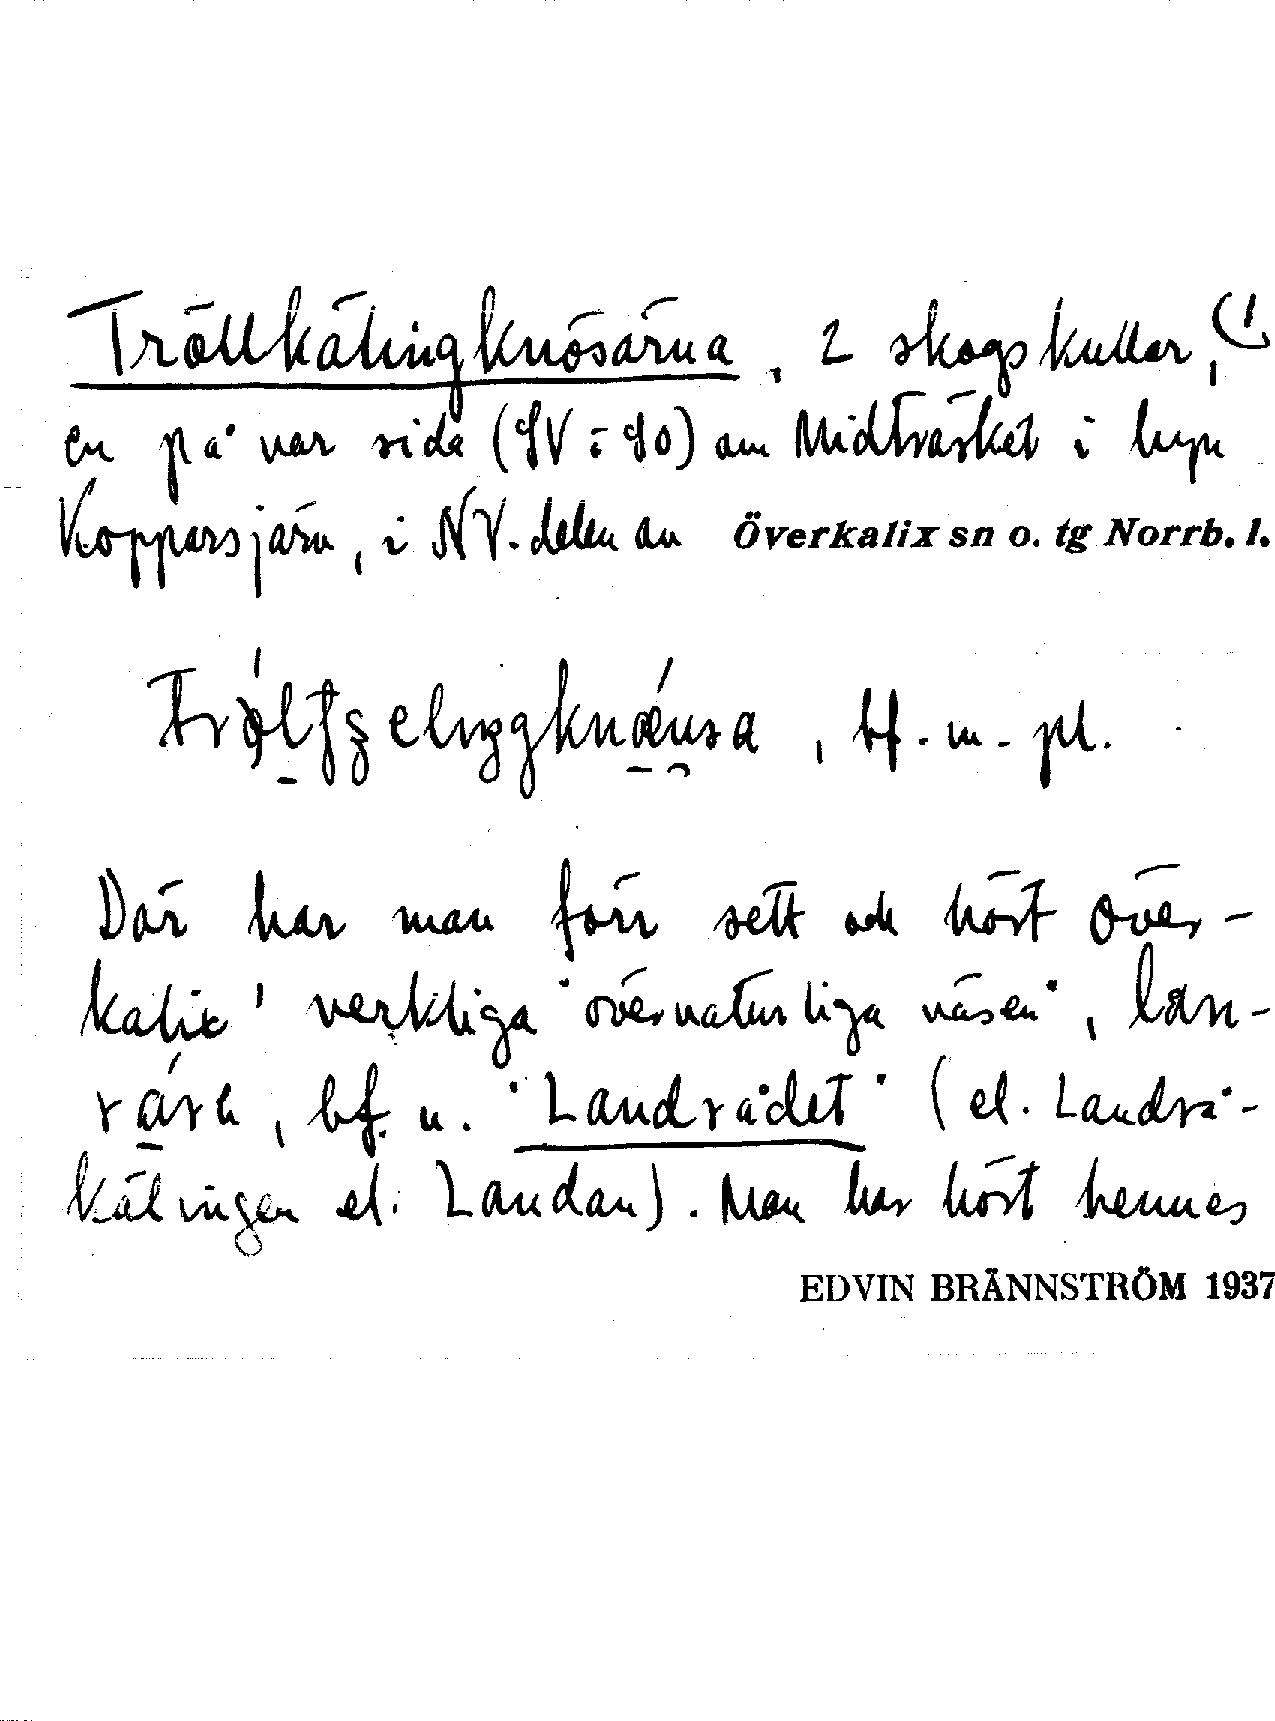 Tröllkälingknösärna, 2 skogskullar, (1
en på var sida (SV o SO) om Midträsket i byn
Kopparsjärn, i NV-delen av Överkalix sn o. tg Norrb. l.
bf. m. pl.
Där har man förr sett och hört Över-
kalix' verkliga "övernaturliga väsen", lan-
bf. n. "Landrådet" (el. Landrå-
kälingen el. Landan). Man har hört hennes
EDVIN BRÄNNSTRÖM 1937